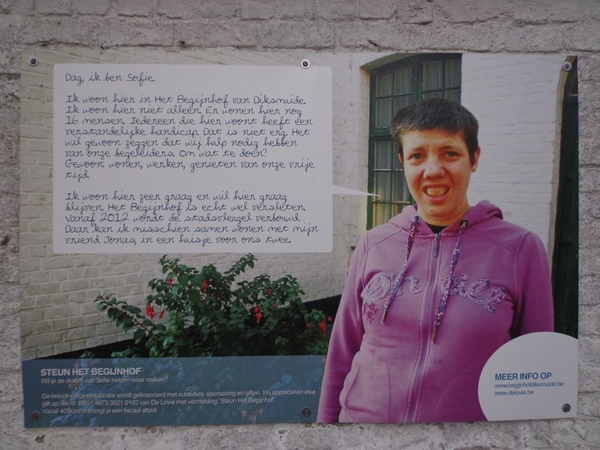 Dag, ik ben Sofie.
Ik woon hier in Het Begijnhof van Diksmuide.
Ik woon hier niet alleen. Er wonen hier nog
16 mensen. Iedereen die hier woont heeft een
verstandelijke handicap. Dat is niet erg. Het
wil gewoon zeggen dat wij hulp nodig hebben
van onze begeleiders. Om wat te doen?
Gewoon: wonen, werken, genieten van onze vrije
tijd.
Ik woon hier zeer graag en wil hier graag
blijven. Het Begijnhof is echt wel versleten.
Vanaf 2012 wordt de stadsvleugel verbouwd.
Daar kan ik misschien samen wonen met mijn
vriend Jonas, in een huisje voor ons twee.
STEUN HET BEGIJNHOF
Wil je de droom van Sofie helpen waar maken?
De broodnodige restauratie wordt gefinancierd met subsidies, sponsoring en giften. Wij appreciëren elke
gift op rek.nr. 4673 3521 0162 van De Lovie met vermelding "Steun Het Begijnhof".
Vanaf 40 euro ontvangt je een fiscaal attest.
MEER INFO OP
www.begijnhofdiksmuide.be
www.delovie.be